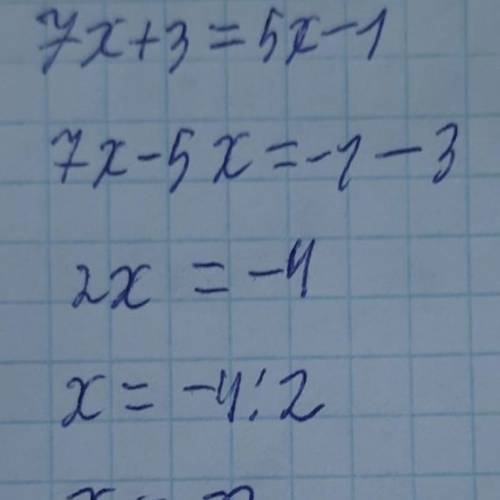 7x+3=5x-1
7x-5x=-1-3
2x=-4
x=-4:2